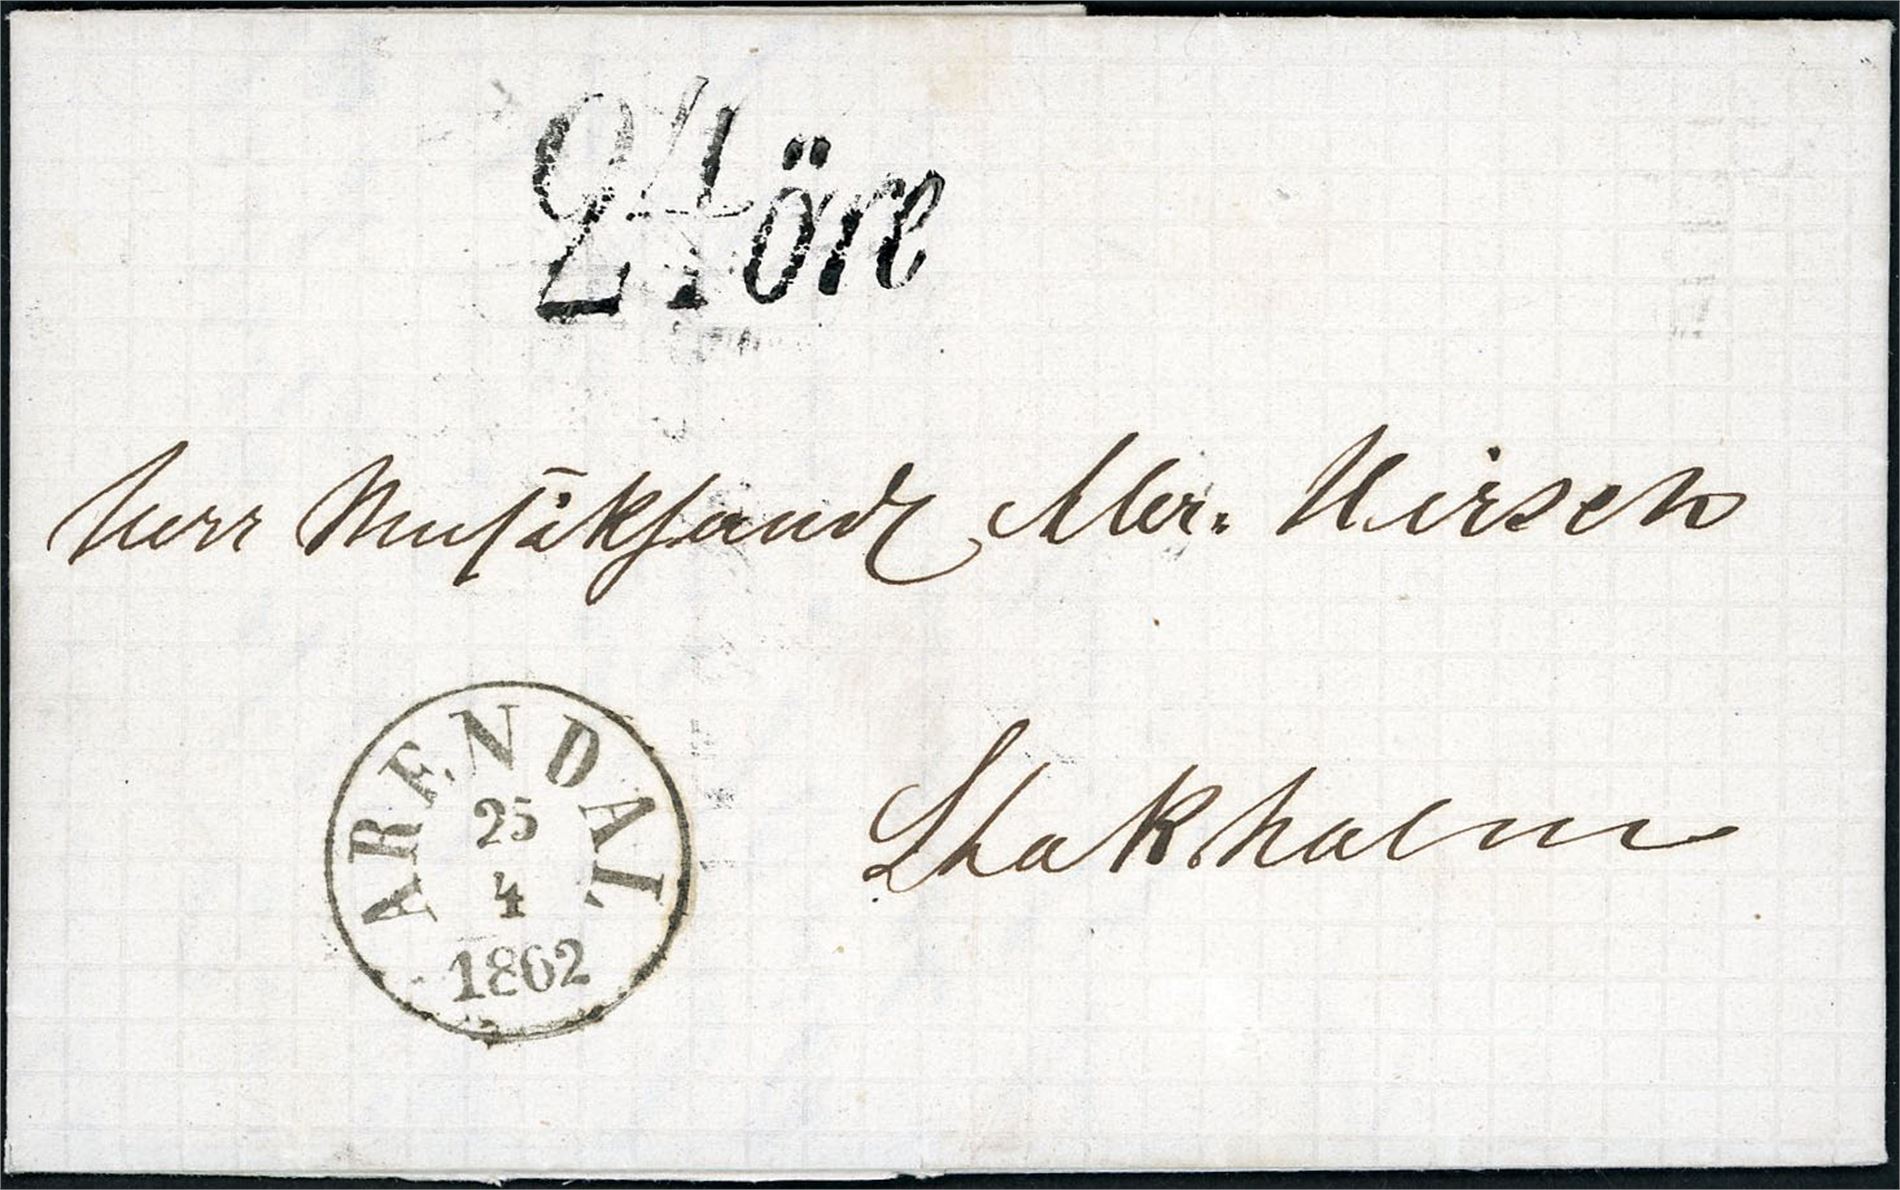 24 öre
Herr Musikhandl Abr. Hirsch
Stokholm
ARENDAL
25
4
1862